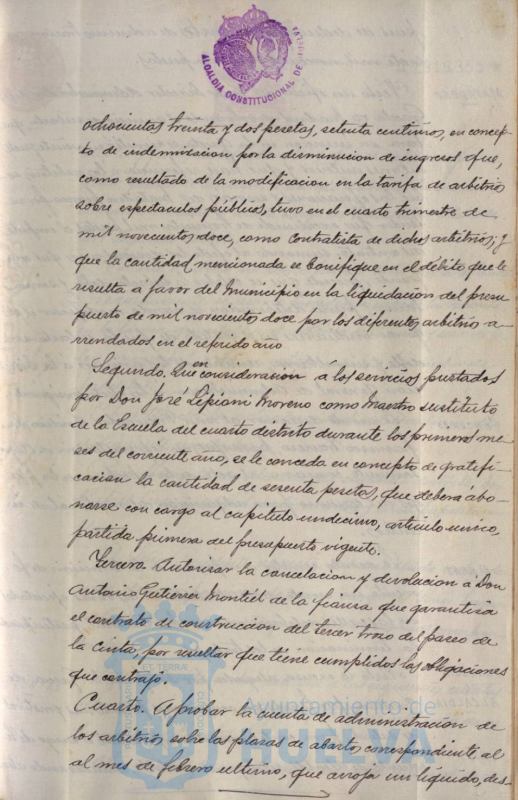 ALCALDIA CONSTITUCIONAL DE HUELVA
ochocientas treinta y dos pesetas, setenta centimos, en concep-
to de indemnizacion por la disminucion de ingresos que,
como resultado de la modificacion en la tarifa de arbitrios
sobre espectaculos públicos, tuvo en el cuarto trimestre de
mil novecientos doce, como contratista de dichos arbitrios; y
que la cantidad mencionada se bonifique en el débito que le
resulta a favor del Municipio en la liquidacion del presu
puesto de mil novecientos doce por los diferentes arbitrios a-
rrendados en el referido año
Segundo. Que en consideracion á los servicios prestados
por Don José Lepiani Moreno como Maestro sustituto
de la Escuela del cuarto distrito durante los primeros me-
ses del corriente año, se le conceda en concepto de gratifi-
cacion la cantidad de sesenta pesetas, que deberá abo-
narse con cargo al capítulo undecimo, articulo unico,
partida primera del presupuesto vigente.
Tercero. Autorizar la cancelacion y devolucion á Don
Antonio Gutierrez Montiel de la fianza que garantiza
el contrato de construccion del tercer trozo del paseo de
la cinta, por resultar que tiene cumplidos las obligaciones
que contrajo.
Cuarto. Aprobar la cuenta de administracion de
los arbitrios sobre las plazas de abasto, correspondiente al
al mes de febrero ultimo, que arroja un líquido, des-
ET TERRÆ
Ayuntamiento de
HUELVA